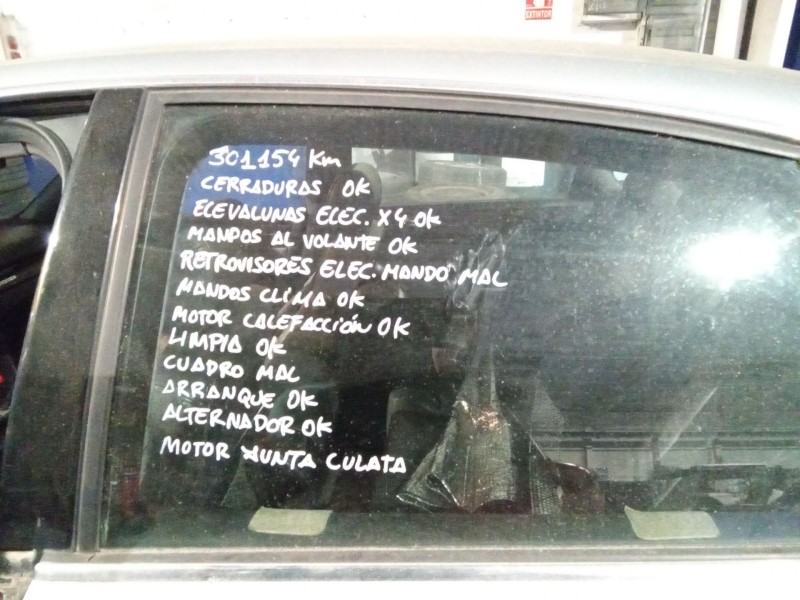 EXTINTOR
301154 Km
CERRADURAS OK
ELEVALUNAS ELEC. X4 OK
MANDOS AL VOLANTE OK
RETROVISORES ELEC. MANDO MAL
MANDOS CLIMA OK
MOTOR CALEFACCIÓN OK
LIMPIA OK
CUADRO MAL
ARRANQUE OK
ALTERNADOR OK
MOTOR JUNTA CULATA